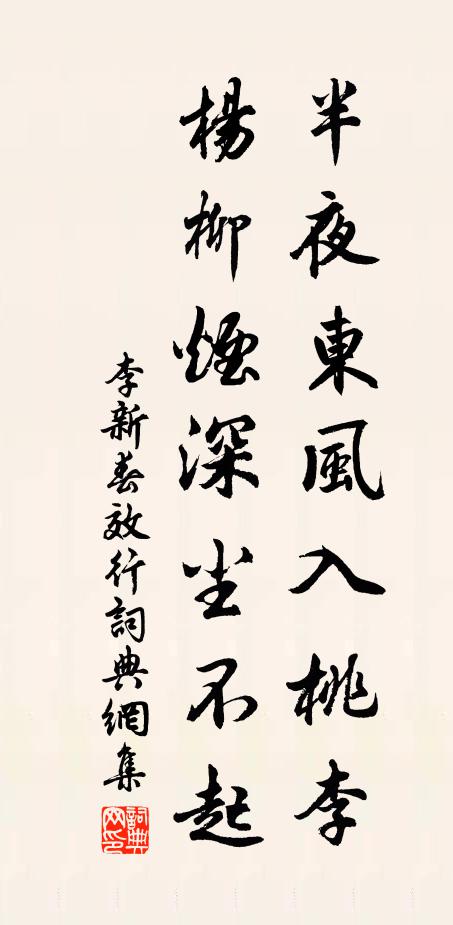 半夜東風入桃李
楊柳煙深尘不起
李新春效行詞典網集
詞典网印